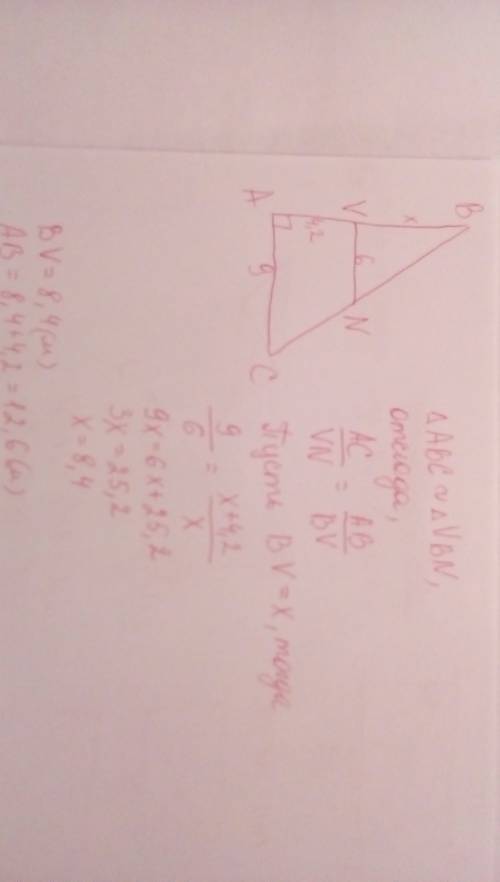 B
x
V 6 N
4,2
A 9 C
ΔABC ~ ΔVBN,
отсюда,
AC/VN = AB/BV
Пусть BV = x, тогда
9/6 = x+4,2/x
9x = 6x + 25,2
3x = 25,2
x = 8,4
BV = 8,4 (м)
AB = 8,4 + 4,2 = 12,6 (м)